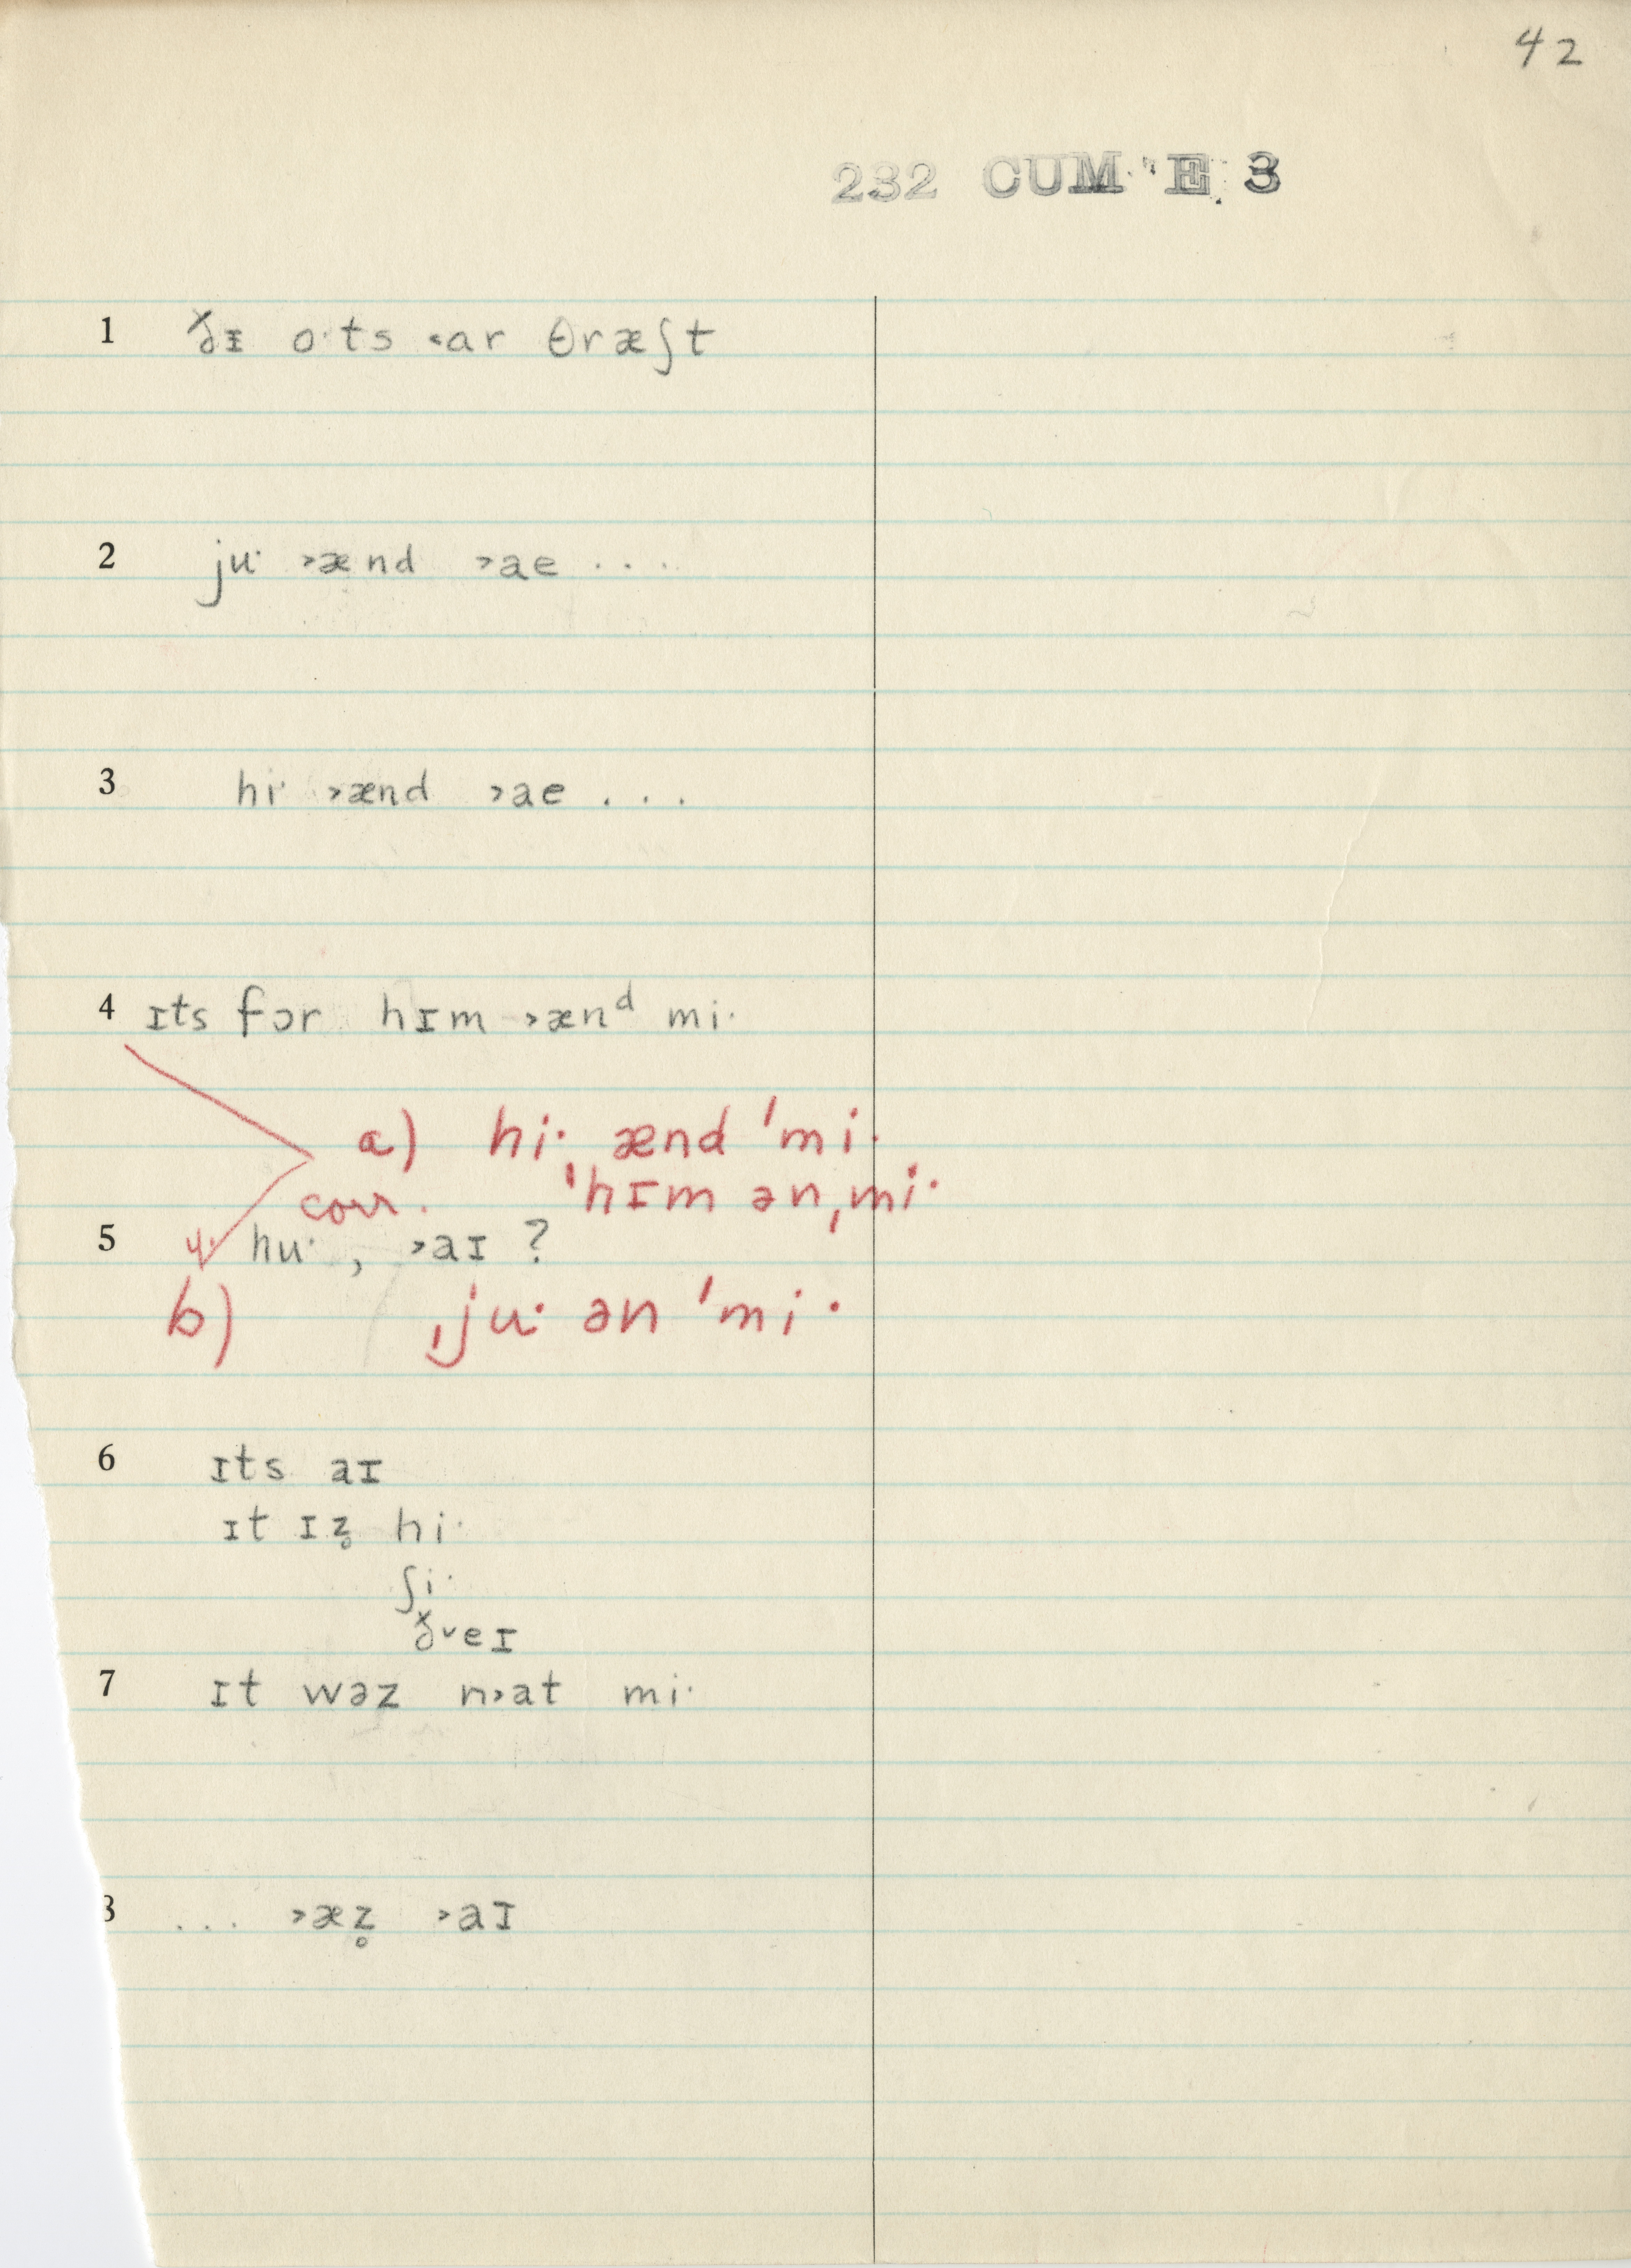 42
232 CUM 'E. 3
1 ðɪ o·ts ˂ar θræʃt
2 ju· ˃ænd ˃ae ...
3 hi· ˃ænd ˃ae ...
4 ɪts fɔr hɪm ˃ænᵈ mi·
a) hi· ænd 'mi·
corr. 'hɪm ən ˌmi·
5 hu·, ˃aɪ ?
b) ˌju· ən 'mi·
6 ɪts aɪ
ɪt ɪz̥ hi·
ʃi·
ð˅eɪ
7 ɪt wəz n˃at mi·
8 ... ˃æz̥ ˃aɪ